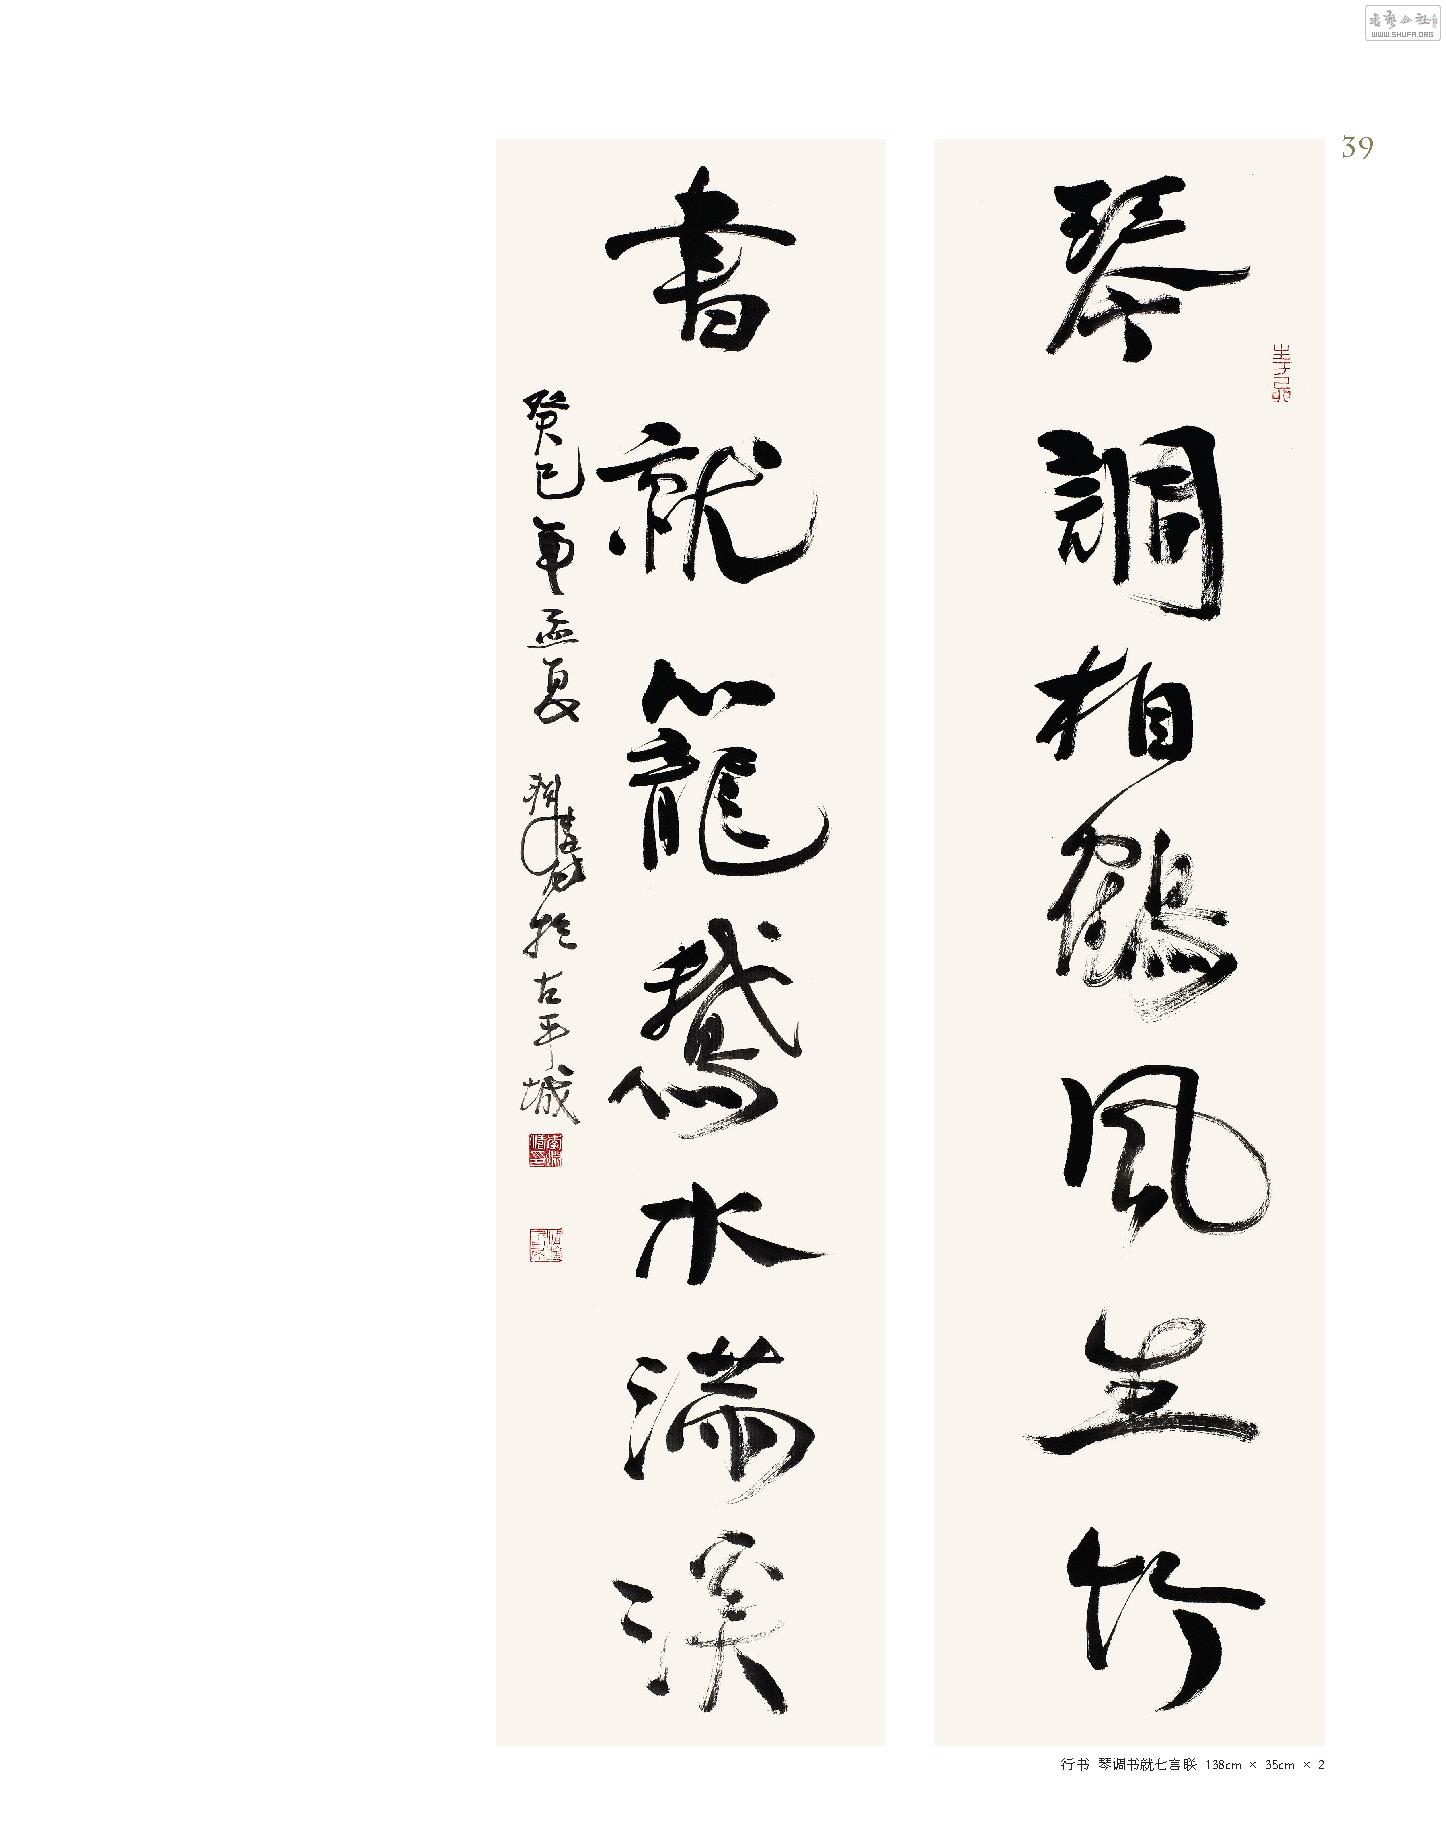 書藝公社
WWW.SHUFA.ORG
39
琴調相鶴風生竹
書就籠鵞水滿溪
癸巳年孟夏
於古平城
行书 琴调书就七言联 138cm × 35cm × 2